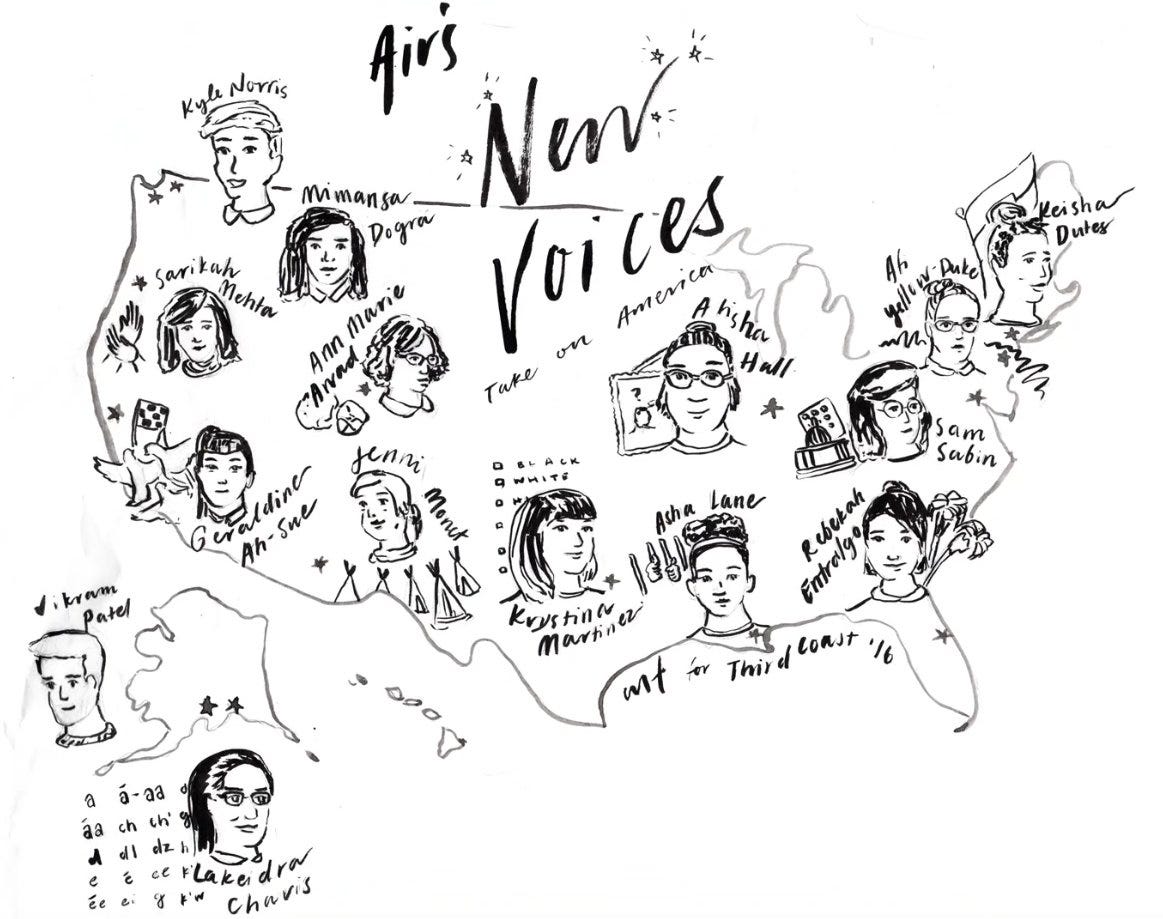 Air's
New
Voices
Take on America
Kyle Norris
Mimansa
Dogra
Sarikah
Mehta
Ann Marie
Awad
Keisha
Dutes
Ah
Yellow-Duke
Alisha
Hall
Sam
Sabin
Geraldine
Ah-Sue
Jenni
Monet
BLACK
WHITE
Krystina
Martinez
Asha Lane
Rebekah
Entralgo
art for Third Coast '16
Vikram
Patel
a á-aa
áa ch ch' g
d dl dz h
e é ee k'
ée ei g k'w
Lakeidra
Chavis